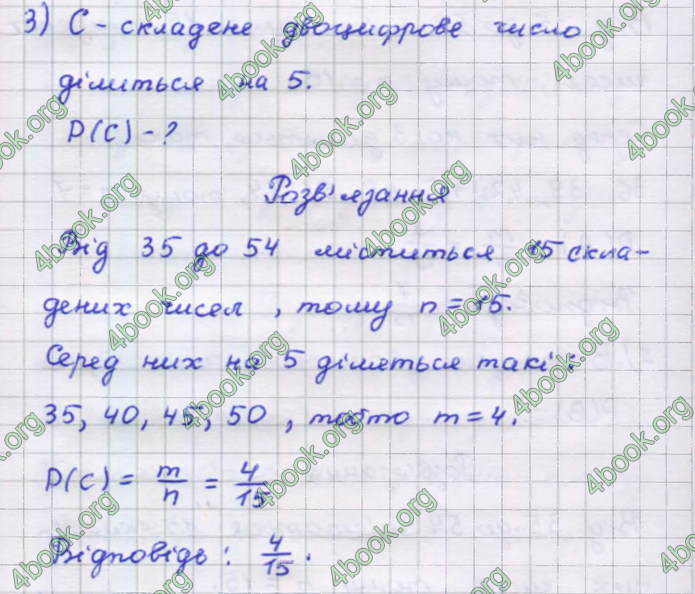 3) С - складене двоцифрове число
ділиться на 5.
P(C) - ?
Розв'язання
Від 35 до 54 міститься 15 скла-
дених чисел, тому n = 15.
Серед них на 5 діляться такі:
35, 40, 45, 50, тобто m = 4.
P(C) = m/n = 4/15
Відповідь: 4/15.
4book.org